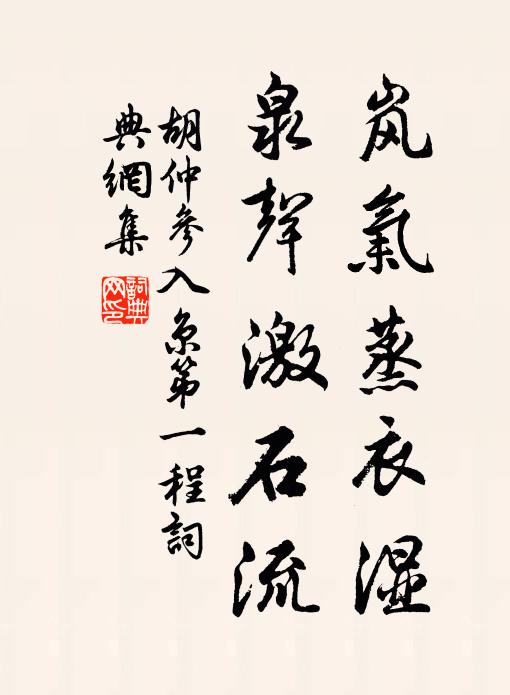 岚氣蒸衣湿
泉聲激石流
胡仲參入京第一程詞
典網集
詞典
网印